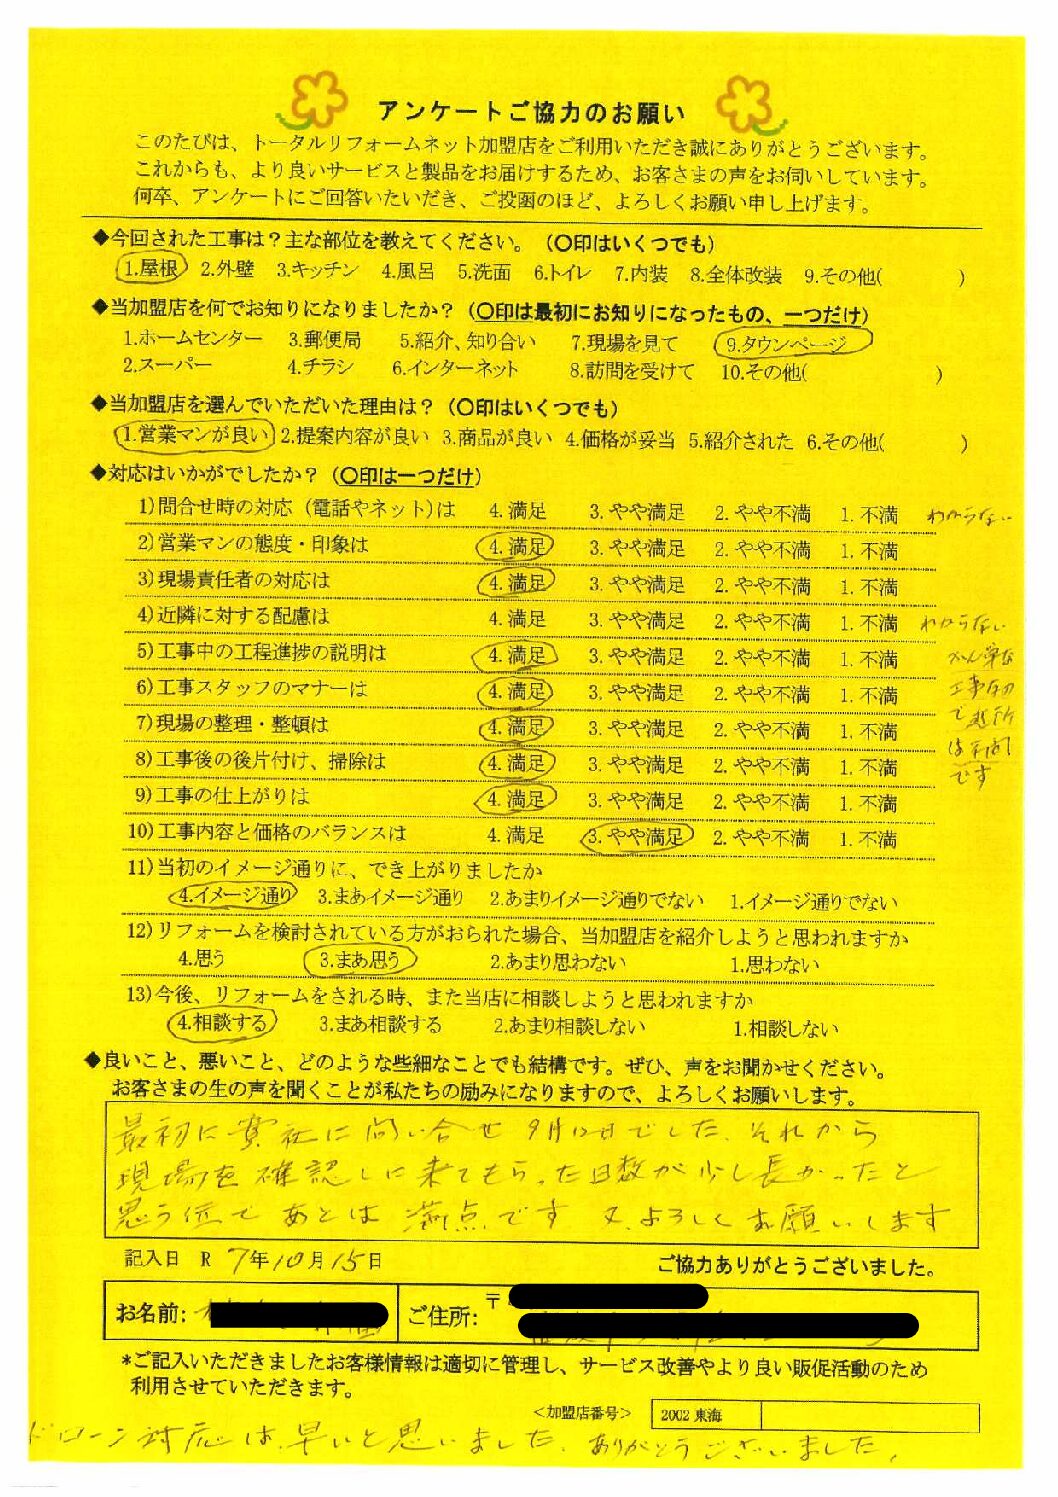 アンケートご協力のお願い
このたびは、トータルリフォームネット加盟店をご利用いただき誠にありがとうございます。
これからも、より良いサービスと製品をお届けするため、お客さまの声をお伺いしています。
何卒、アンケートにご回答いたいだき、ご投函のほど、よろしくお願い申し上げます。
◆今回された工事は？主な部位を教えてください。（〇印はいくつでも）
1.屋根 2.外壁 3.キッチン 4.風呂 5.洗面 6.トイレ 7.内装 8.全体改装 9.その他( )
◆当加盟店を何でお知りになりましたか？（〇印は最初にお知りになったもの、一つだけ）
1.ホームセンター 3.郵便局 5.紹介、知り合い 7.現場を見て 9.タウンページ
2.スーパー 4.チラシ 6.インターネット 8.訪問を受けて 10.その他( )
◆当加盟店を選んでいただいた理由は？（〇印はいくつでも）
1.営業マンが良い 2.提案内容が良い 3.商品が良い 4.価格が妥当 5.紹介された 6.その他( )
◆対応はいかがでしたか？（〇印は一つだけ）
1)問合せ時の対応（電話やネット)は 4.満足 3.やや満足 2.やや不満 1.不満 わからない
2)営業マンの態度・印象は 4.満足 3.やや満足 2.やや不満 1.不満
3)現場責任者の対応は 4.満足 3.やや満足 2.やや不満 1.不満
4)近隣に対する配慮は 4.満足 3.やや満足 2.やや不満 1.不満 わからない
5)工事中の工程進捗の説明は 4.満足 3.やや満足 2.やや不満 1.不満 かん単な
6)工事スタッフのマナーは 4.満足 3.やや満足 2.やや不満 1.不満 工事なの
7)現場の整理・整頓は 4.満足 3.やや満足 2.やや不満 1.不満 で近所
は不問
8)工事後の後片付け、掃除は 4.満足 3.やや満足 2.やや不満 1.不満 です
9)工事の仕上がりは 4.満足 3.やや満足 2.やや不満 1.不満
10)工事内容と価格のバランスは 4.満足 3.やや満足 2.やや不満 1.不満
11)当初のイメージ通りに、でき上がりましたか
4.イメージ通り 3.まあイメージ通り 2.あまりイメージ通りでない 1.イメージ通りでない
12)リフォームを検討されている方がおられた場合、当加盟店を紹介しようと思われますか
4.思う 3.まあ思う 2.あまり思わない 1.思わない
13)今後、リフォームをされる時、また当店に相談しようと思われますか
4.相談する 3.まあ相談する 2.あまり相談しない 1.相談しない
◆良いこと、悪いこと、どのような些細なことでも結構です。ぜひ、声をお聞かせください。
お客さまの生の声を聞くことが私たちの励みになりますので、よろしくお願いします。
最初に貴社に問い合せ9月12日でした、それから
現場を確認しに来てもらった日数が少し長かったと
思う位であとは満点です 又、よろしくお願いします
記入日 R 7年10月15日 ご協力ありがとうございました。
お名前: ご住所: 〒
*ご記入いただきましたお客様情報は適切に管理し、サービス改善やより良い販促活動のため
利用させていただきます。
<加盟店番号> 2002 東海
ドローン対応は早いと思いました、ありがとうございました。